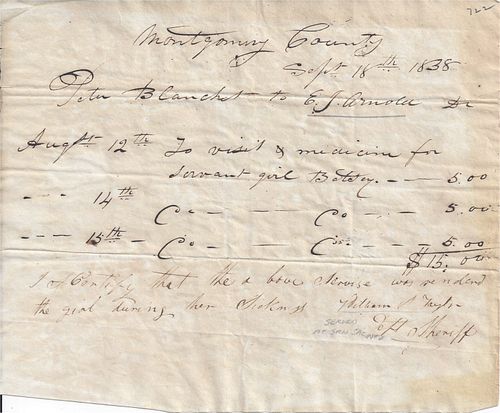 722
Montgomery County
Sept 18th 1838
Peter Blanchet to E. J. Arnold Dr
Augst 12th To visit & medicine for
servant girl Betsey. — — 5.00
- - - 14th Do — — Do — 5.00
- - - 15th Do — — Do — 5.00
$15.00
I do Certify that the above Service was renderd
the girl during her Sickness William S Taylor
Sheriff
SERVED
AT SAN JACINTO